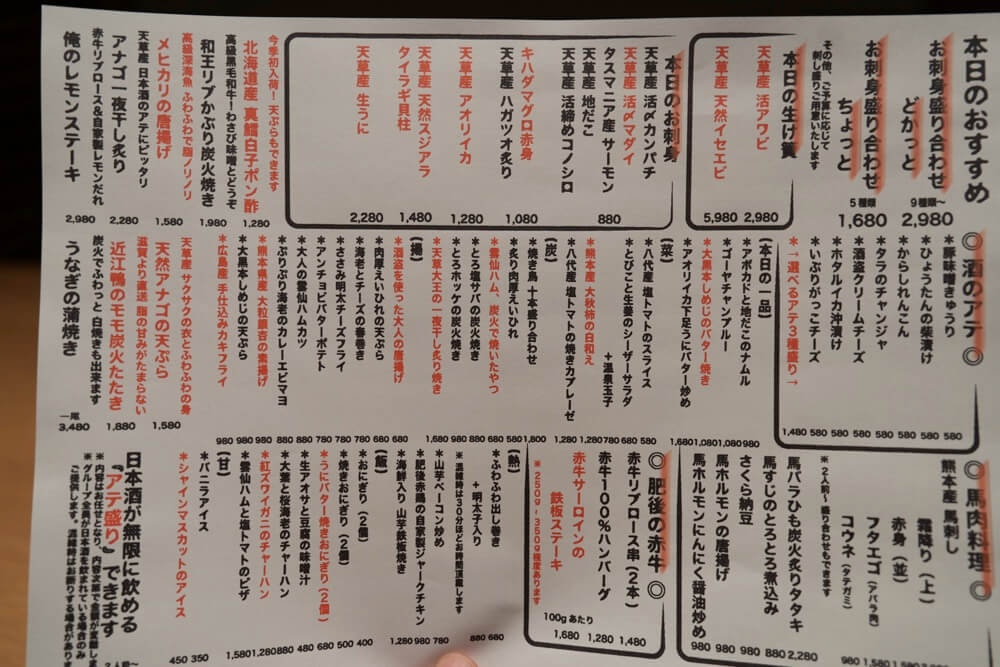 本日のおすすめ
お刺身盛り合わせ
どかっと
9種類〜
2,980
お刺身盛り合わせ
ちょっと
5種類
1,680
その他、ご予算に応じて
刺し盛りご用意いたします
本日の生け簀
天草産 活アワビ
2,980
天草産 天然イセエビ
5,980
本日のお刺身
天草産 活〆カンパチ
天草産 活〆マダイ
タスマニア産 サーモン
天草産 地だこ
880
天草産 活締めコノシロ
天草産 ハガツオ炙り
キハダマグロ赤身
1,080
天草産 アオリイカ
1,280
天草産 天然スジアラ
1,480
タイラギ貝柱
天草産 生うに
2,280
今季初入荷！天ぷらもできます
北海道産 真鱈白子ポン酢
1,280
高級黒毛和牛！わさび味噌とどうぞ
和王リブかぶり炭火焼き
1,980
高級深海魚 ふわふわで脂ノリノリ
メヒカリの唐揚げ
1,580
天草産 日本酒のアテにピッタリ
アナゴ一夜干し炙り
2,280
赤牛リブロース&自家製レモンだれ
俺のレモンステーキ
2,980
◎酒のアテ◎
*豚味噌きゅうり
580
*ひょうたんの柴漬け
580
*からしれんこん
580
*タラのチャンジャ
580
*酒盗クリームチーズ
580
*ホタルイカ沖漬け
580
*いぶりがっこチーズ
580
*→選べるアテ3種盛り→
1,480
【本日の一品】
*アボカドと地だこのナムル
980
*ゴーヤチャンプル
1,080
*大黒本しめじのバター焼き
1,080
*アオリイカ下足うにバター炒め
1,680
【菜】
*八代産 塩トマトのスライス
580
*とびこと生姜のシーザーサラダ
680
+温泉玉子
780
*熊本産 大秋柿の白和え
1,280
*八代産 塩トマトの焼きカプレーゼ
1,280
【炭】
*焼き鳥 十本盛り合わせ
1,800
*炙り肉厚えいひれ
580
*雲仙ハム、炭火で焼いたやつ
680
*とろ塩サバの炭火焼き
880
*とろホッケの炭火焼き
980
*天草大王の一夜干し炙り焼き
1,680
【揚】
*酒盗を使った大人の唐揚げ
680
*肉厚えいひれの天ぷら
680
*海老とチーズの春巻き
780
*ささみ明太チーズフライ
780
*アンチョビバターポテト
780
*大人の雲仙ハムカツ
880
*ぷりぷり海老のカレーエビマヨ
880
*熊本県産 大粒銀杏の素揚げ
980
*大黒本しめじの天ぷら
980
*広島産 手仕込みカキフライ
980
天草産 サクサクの衣とふわふわの身
天然アナゴの天ぷら
1,580
滋賀より直送 脂の甘みがたまらない
近江鴨のモモ炭火たたき
1,880
炭火でふわっと 白焼きも出来ます
うなぎの蒲焼き
一尾
3,480
◎馬肉料理◎
熊本産 馬刺し
霜降り（上）
赤身（並）
フタエゴ（アバラ肉）
1,580
コウネ（タテガミ）
980
※2人前〜盛り合わせもできます
馬バラひも炭火炙りタタキ
2,280
馬すじのとろとろ煮込み
880
さくら納豆
980
馬ホルモンの唐揚げ
980
馬ホルモンにんにく醤油炒め
980
◎肥後の赤牛◎
赤牛リブロース串（2本）
1,480
赤牛100%ハンバーグ
1,280
赤牛サーロインの
鉄板ステーキ
100gあたり
1,680
※250g~350g程度あります
【熱】
*ふわふわ出し巻き
680
+明太子入り
880
※混雑時は30分ほどお時間頂戴します
*山芋ベーコン炒め
780
*肥後赤鶏の自家製ジャークチキン
980
*海鮮入り 山芋鉄板焼き
1,280
【飯】
*おにぎり（2個）
400
*焼きおにぎり（2個）
500
*うにバター焼きおにぎり（2個）
680
*生アオサと豆腐の味噌汁
480
*大葉と桜海老のチャーハン
880
*紅ズワイガニのチャーハン
1,280
*雲仙ハムと塩トマトのピザ
1,580
【甘】
*バニラアイス
350
*シャインマスカットのアイス
450
日本酒が無限に飲める
『アテ盛り』できます
※内容はお任せとなり、内容次第で金額が変動しま
※グループ全員が日本酒を飲まれている場合のみ
ご提供します。混雑時はお断りする場合があり